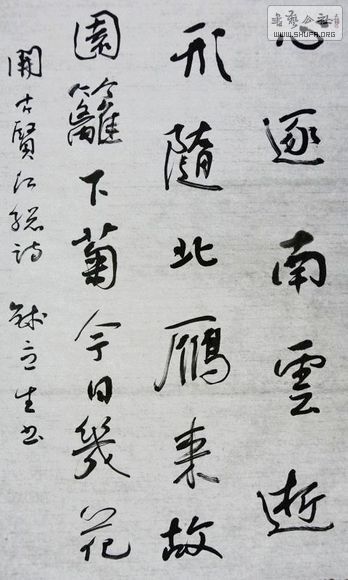 心逐南雲逝
形隨北鴈来故
園籬下菊今日幾花
開古賢江總詩 立生书
書藝公社
WWW.SHUFA.ORG